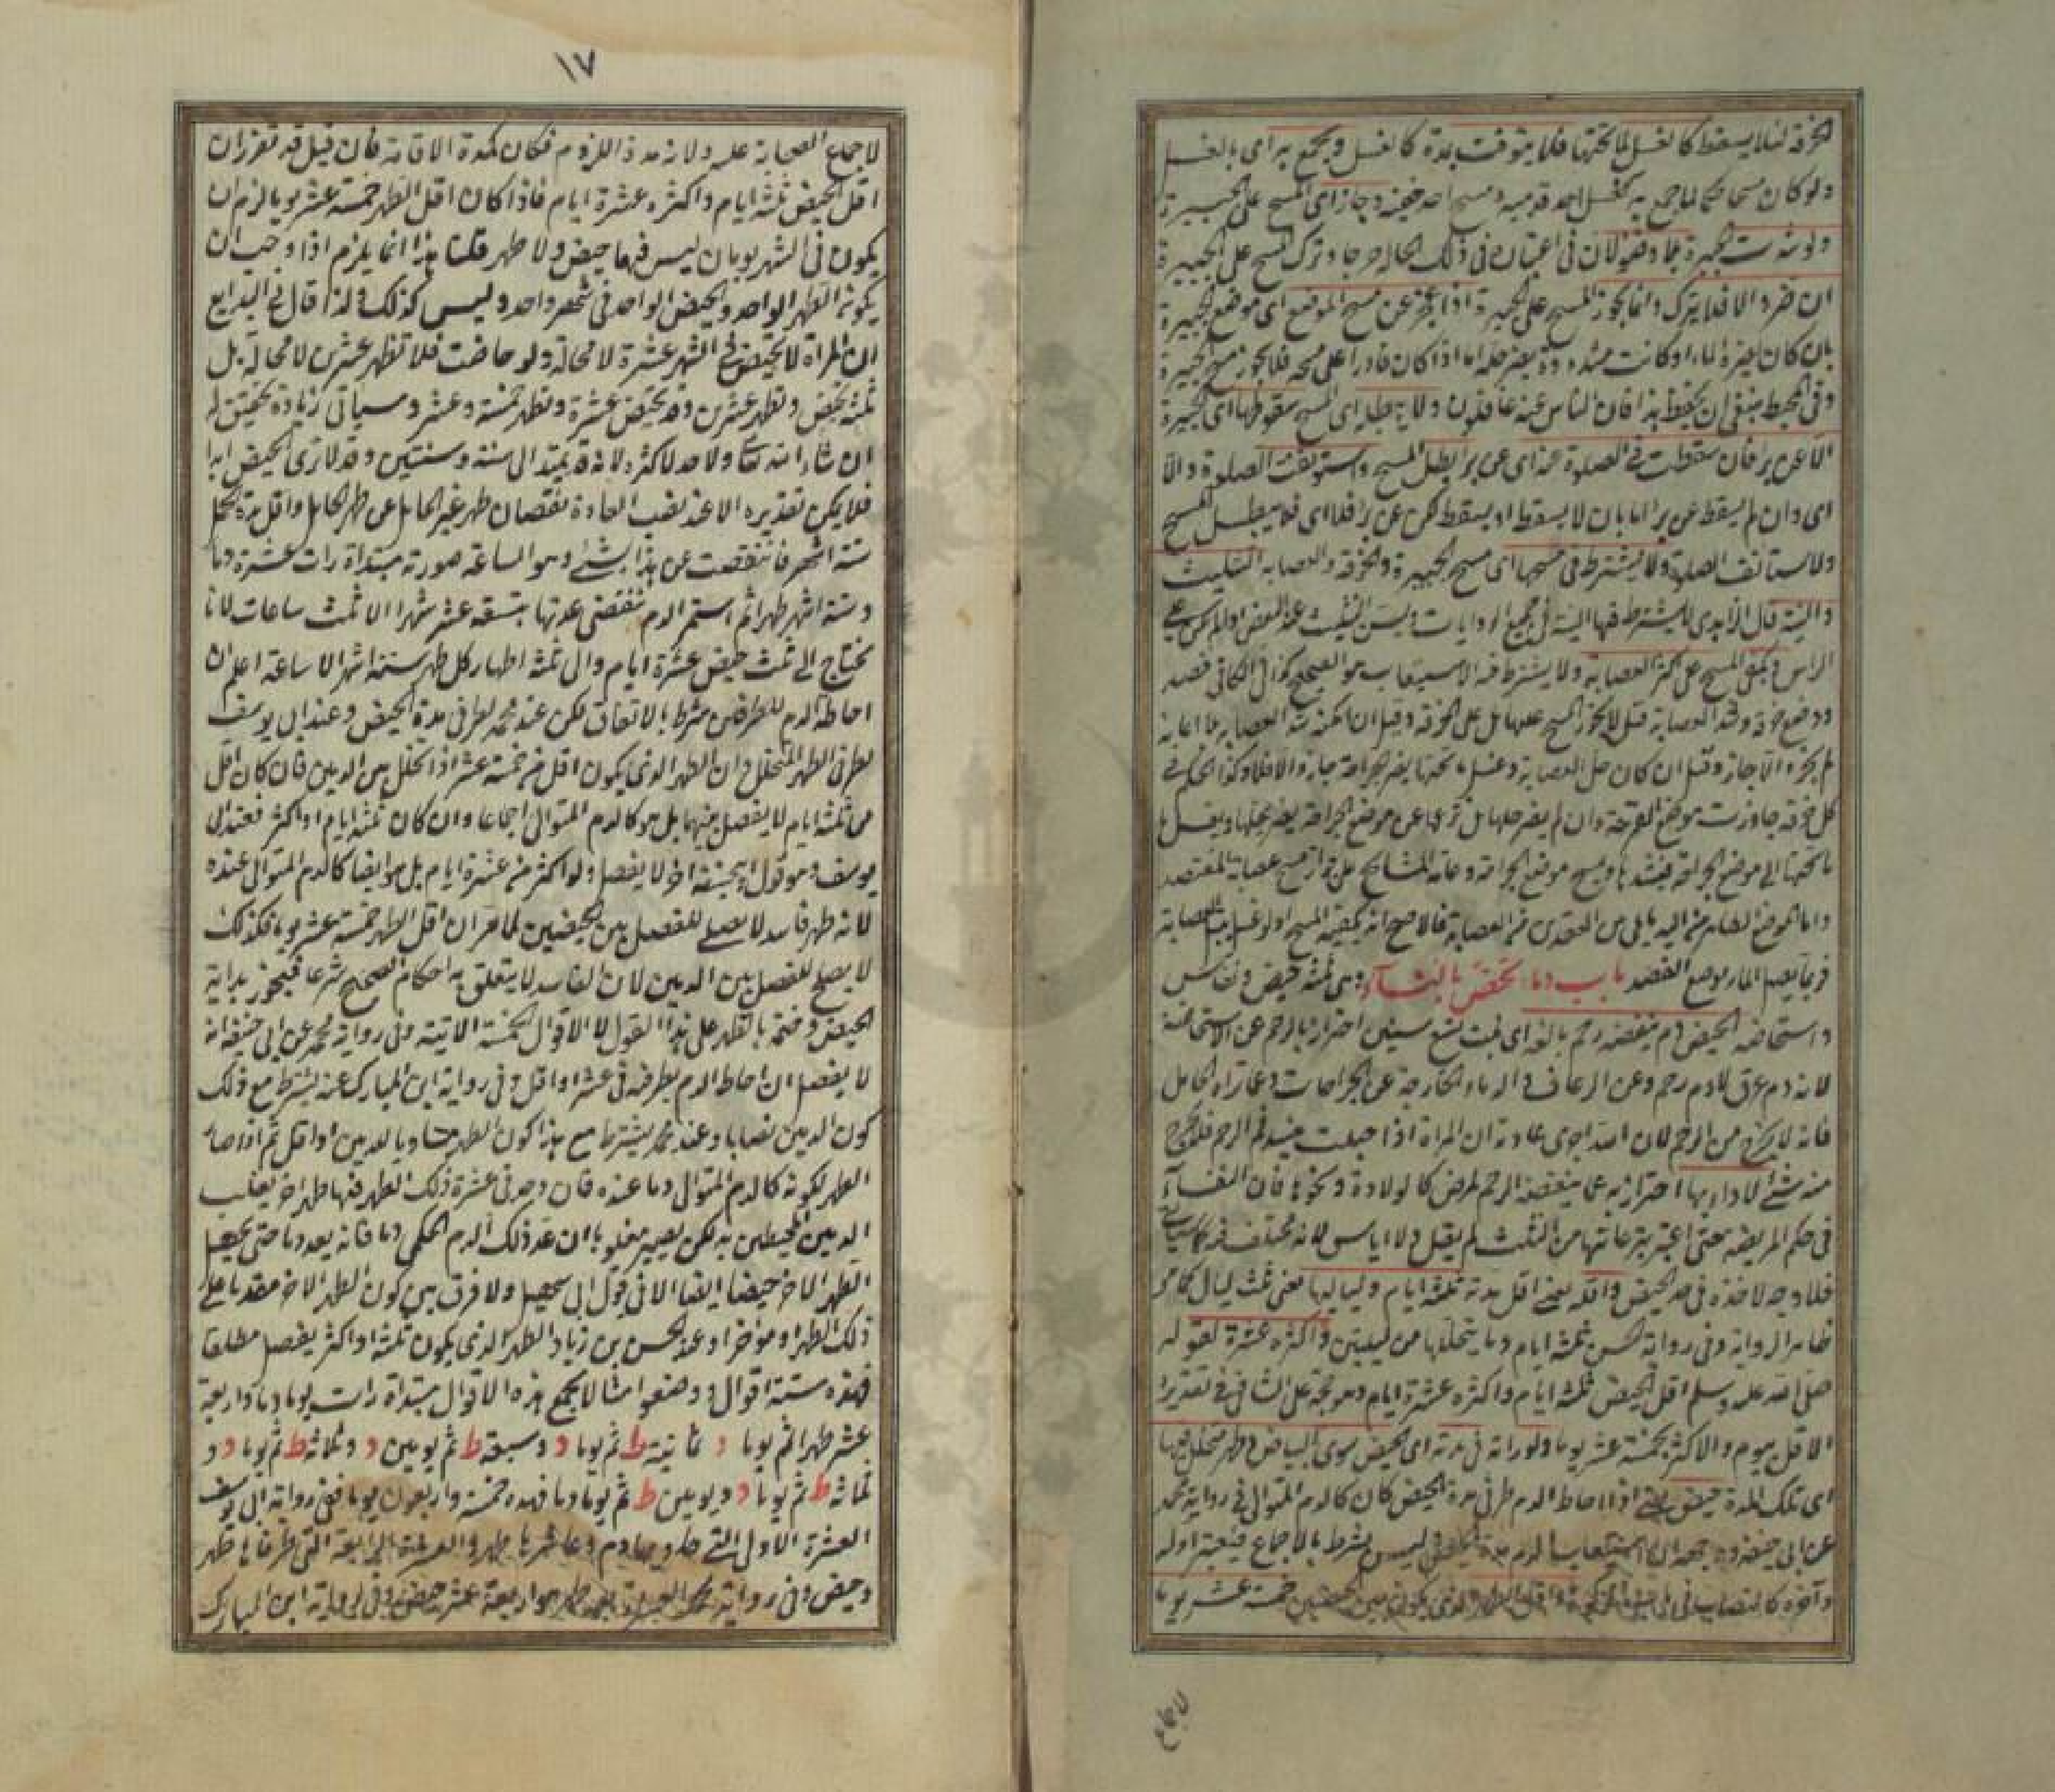 ولو كان مسحا حكما لما جمع به كغسل احد قدميه ومسح احد خفيه وجاز اى المسح على الجبيرة
ولو شدت الجبيرة بلا وضوء لان فى اعتباره فى ذلك الحالة حرجا وترك المسح على الجبيرة
ان ضر والا فلا يترك وانما يجوز المسح على الجبيرة اذا عجز عن مسح الموضع اى موضع الجبيرة
بان كان يضره الماء او كانت مشدودة يضر حلها اما اذا كان قادرا على مسحه فلا يجوز مسح الجبيرة
وفى المحيط ينبغى ان يحفظ هذا فان الناس عنه غافلون ولا يبطله اى المسح سقوطها اى الجبيرة
الا عن برء فان سقطت فى الصلوة عنه اى عن برء بطل المسح واستونفت الصلوة والا
اى وان لم يسقط عن برء اما بان لا يسقط او يسقط لكن عن برء فلا اى فلا يبطل المسح
ولا يستانف الصلوة ولا يشترط فى مسحها اى مسح الجبيرة والخرقة والعصابة التثليث
والنية قال الزاهدى لا يشترط فيها النية فى جميع الروايات ويسن التثليث عند البعض اذا لم يكن على
الراس ويكفى المسح على اكثر العصابة ولا يشترط فيه الاستيعاب هو الصحيح كذا فى الكافى فصد
ووضع خرقة وشد العصابة قيل لا يجوز المسح عليها بل على الخرقة وقيل ان امكنه شد العصابة بلا اعانة
لم يجز والا جاز وقيل ان كان حل العصابة وغسل ما تحتها يضر الجراحة جاز والا فلا وكذا الحكم فى
كل خرقة جاوزت موضع القرحة وان لم يضر حلها بل نزعها عن موضع الجراحة يضر يحلها ويغسل ما
تحتها الى موضع الجراحة فيشدها ويمسح موضع الجراحة وعامة المشايخ على جواز مسح عصابة المفتصد
واما الموضع الظاهر من اليد ما بين العقدتين من العصابة فالاصح انه يكفيه المسح اذ لو غسل تبتل العصابة
فربما يصل الماء موضع الفصد باب دماء تختص بالنساء وهى ثلثة حيض ونفاس
واستحاضة الحيض دم ينفضه رحم بالغة اى بنت تسع سنين احترز بالرحم عن الاستحاضة
لانه دم عرق لا دم رحم وعن الرعاف والدماء الخارجة عن الجراحات وعما تراه الحامل
فانه لا يخرج من الرحم لان الله اجرى عادته ان المراة اذا حبلت ينسد فم الرحم فلا يخرج
منه شئ لا داء بها احترز به عما ينفضه الرحم لمرض كالولادة ونحوها فان النفساء
فى حكم المريضة حتى اعتبر تبرعاتها من الثلث لم يقل ولا اياس لانه مختلف فيه كما سياتى
فلا وجه لاخذه فى حد الحيض واقله يعنى اقل مدته ثلثة ايام ولياليها يعنى ثلث ليال كما هو
ظاهر الرواية وفى رواية الحسن ثلثة ايام وما يتخللها من ليلتين واكثره عشرة لقوله
صلى الله عليه وسلم اقل الحيض ثلثة ايام واكثره عشرة ايام وهو حجة على الشافعى فى تقديره
الاقل بيوم والاكثر بخمسة عشر يوما ولون راته فى مدته اى الحيض سوى البياض وطهر متخلل فيها
اى تلك المدة حيض يعنى اذا احاط الدم طرفى مدة الحيض كان كالدم المتوالى فى رواية محمد
عن ابى حنيفة ووجهه ان استيعاب الدم مدة الحيض ليس بشرط بالاجماع فيعتبر اوله
وآخره كالنصاب فى باب الزكوة واقل الطهر الذى يكون بين الحيضتين خمسة عشر يوما
لاجماع
١٧
لاجماع الصحابة عليه ولانه مدة اللزوم فكان كمدة الاقامة فان قيل قد تقرر ان
اقل الحيض ثلثة ايام واكثره عشرة ايام فاذا كان اقل الطهر خمسة عشر يوما لزم ان
يكون فى الشهر يومان ليس فيهما حيض ولا طهر قلنا هذا انما يلزم اذا وجب ان
يكون الطهر الواحد والحيض الواحد فى شهر واحد وليس كذلك ولذا قال فى البدايع
ان المراة لا تحيض فى الشهر عشرة لا محالة ولو حاضت فلا تطهر عشرين لا محالة بل
ثلثة تحيض وتطهر عشرين وقد تحيض عشرة وتطهر خمسة وعشر وسياتى زيادة تحقيق له
ان شاء الله تعالى ولا حد لاكثره لانه قد يمتد الى سنة وسنتين وقد لا ترى الحيض ابدا
فلا يمكن تقديره الا عند نصب العادة نقصان طهر غير الحامل عن طهر الحامل واقل مدة الحمل
ستة اشهر فانتقصت عن هذا بشئ وهو الساعة صورته مبتداة رات عشرة دما
وستة اشهر طهرا ثم استمر الدم تنقضى عدتها بتسعة عشر شهرا الا ثلث ساعات لانها
تحتاج الى ثلث حيض عشرة ايام والى ثلثة اطهار كل طهر ستة اشهر الا ساعة اعلم ان
احاطة الدم للطرفين شرط بالاتفاق لكن عند محمد لطرفى مدة الحيض وعند ابى يوسف
لطرفى الطهر المتخلل وان الطهر الذى يكون اقل من خمسة عشر اذا تخلل بين الدمين فان كان اقل
من ثلثة ايام لا يفصل بينهما بل هو كالدم المتوالى اجماعا وان كان ثلثة ايام او اكثر فعند ابى
يوسف وهو قول ابى حنيفة اخرا لا يفصل ولو اكثر من عشرة ايام بل هو ايضا كالدم المتوالى عنده
لانه طهر فاسد لا يصلح للفصل بين الحيضتين لما مر ان اقل الطهر خمسة عشر يوما فكذلك
لا يصلح للفصل بين الدمين لان الفاسد لا يتعلق به احكام الصحيح شرعا فيجوز بداية
الحيض وختمه بالطهر على هذا القول لا الاقوال الخمسة الاتية وفى رواية محمد عن ابى حنيفة انه
لا يفصل ان احاط الدم بطرفيه فى عشرة او اقل وفى رواية ابن المبارك عنه يشترط مع ذلك
كون الدمين نصابا وعند محمد يشترط مع هذا كون الطهر مساويا للدمين او اقل ثم اذا صار
الطهر لكونه كالدم المتوالى دما عنده فان وجد فى عشرة ذلك الطهر فيها طهر اخر يغلب
الدمين المحيطين به لكن يصير مغلوبا ان عد ذلك الدم الحكمى دما فانه يعد دما حتى يجعل
الطهر الاخر حيضا ايضا الا فى قول ابى سهيل ولا فرق بين كون الطهر الاخر مقدما على
ذلك الطهر او مؤخرا وعند الحسن بن زياد الطهر الذى يكون ثلثة او اكثر يفصل مطلقا
فهذه ستة اقوال ووضعوا مثالا يجمع هذه الاقوال مبتداة رات يوما دما واربعة
عشر طهرا ثم يوما د ثمانية ط ثم يوما د وسبعة ط ثم يومين د وثلاثة ط ثم يوما د و
ثلاثة ط ثم يوما د ويومين ط ثم يوما دما فهذه خمسة واربعون يوما ففى رواية ابى يوسف
العشرة الاولى التى حاديها دم وعاشرها طهر والعشرة الرابعة التى طرفاها طهر